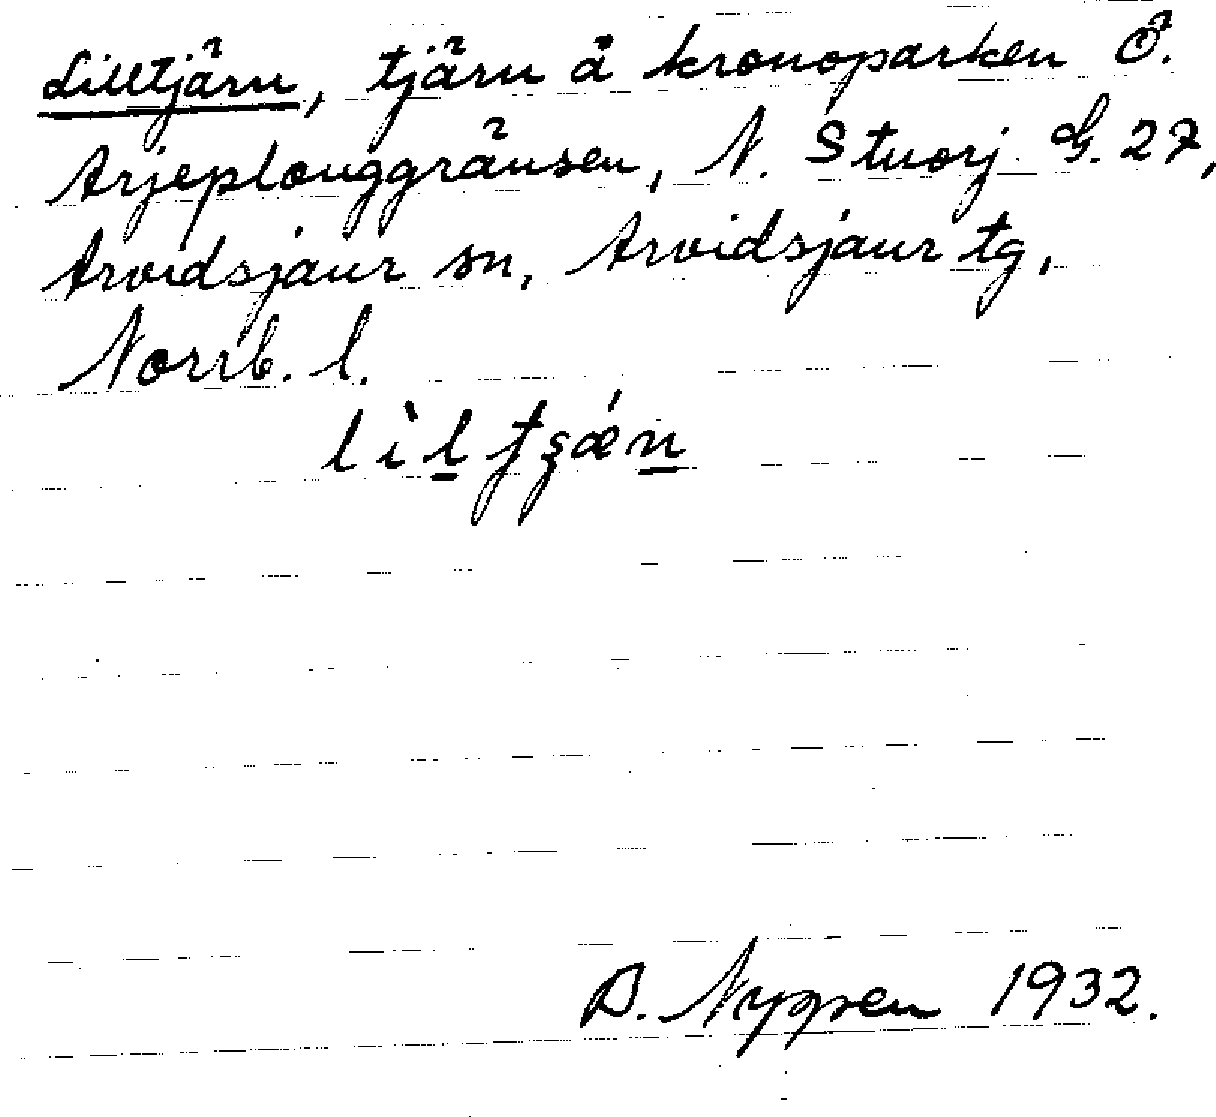 Lilltjärn, tjärn å kronoparken Ö.
Arjeplouggränsen, N. Stuorj. G. 27,
Arvidsjaur sn, Arvidsjaur tg,
Norrb. l.
A. Nyppen 1932.